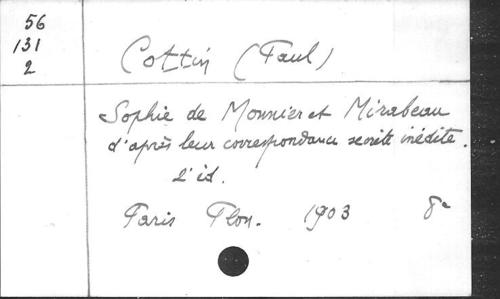 56
131
2
Cottin (Paul)
Sophie de Monnier et Mirabeau
d'après leur correspondance secrète inédite.
2e éd.
Paris Plon. 1903 8°